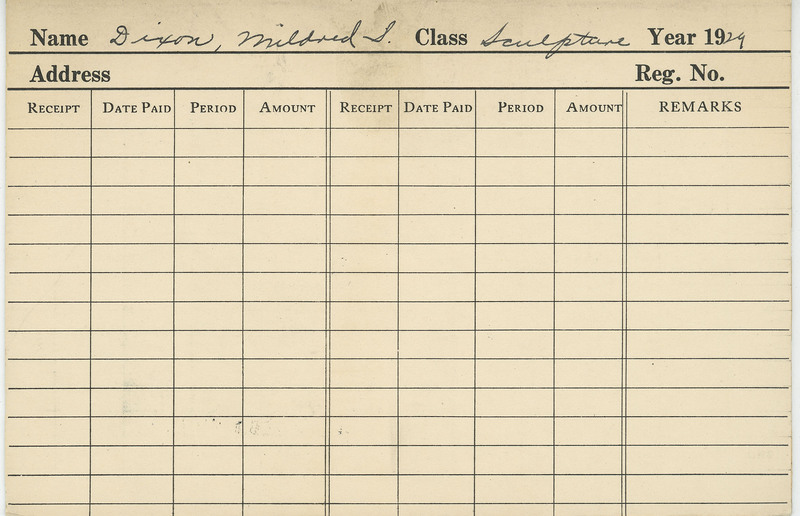 Name Dixon, Mildred S. Class Sculpture Year 1929
Address Reg. No.
RECEIPT DATE PAID PERIOD AMOUNT RECEIPT DATE PAID PERIOD AMOUNT REMARKS